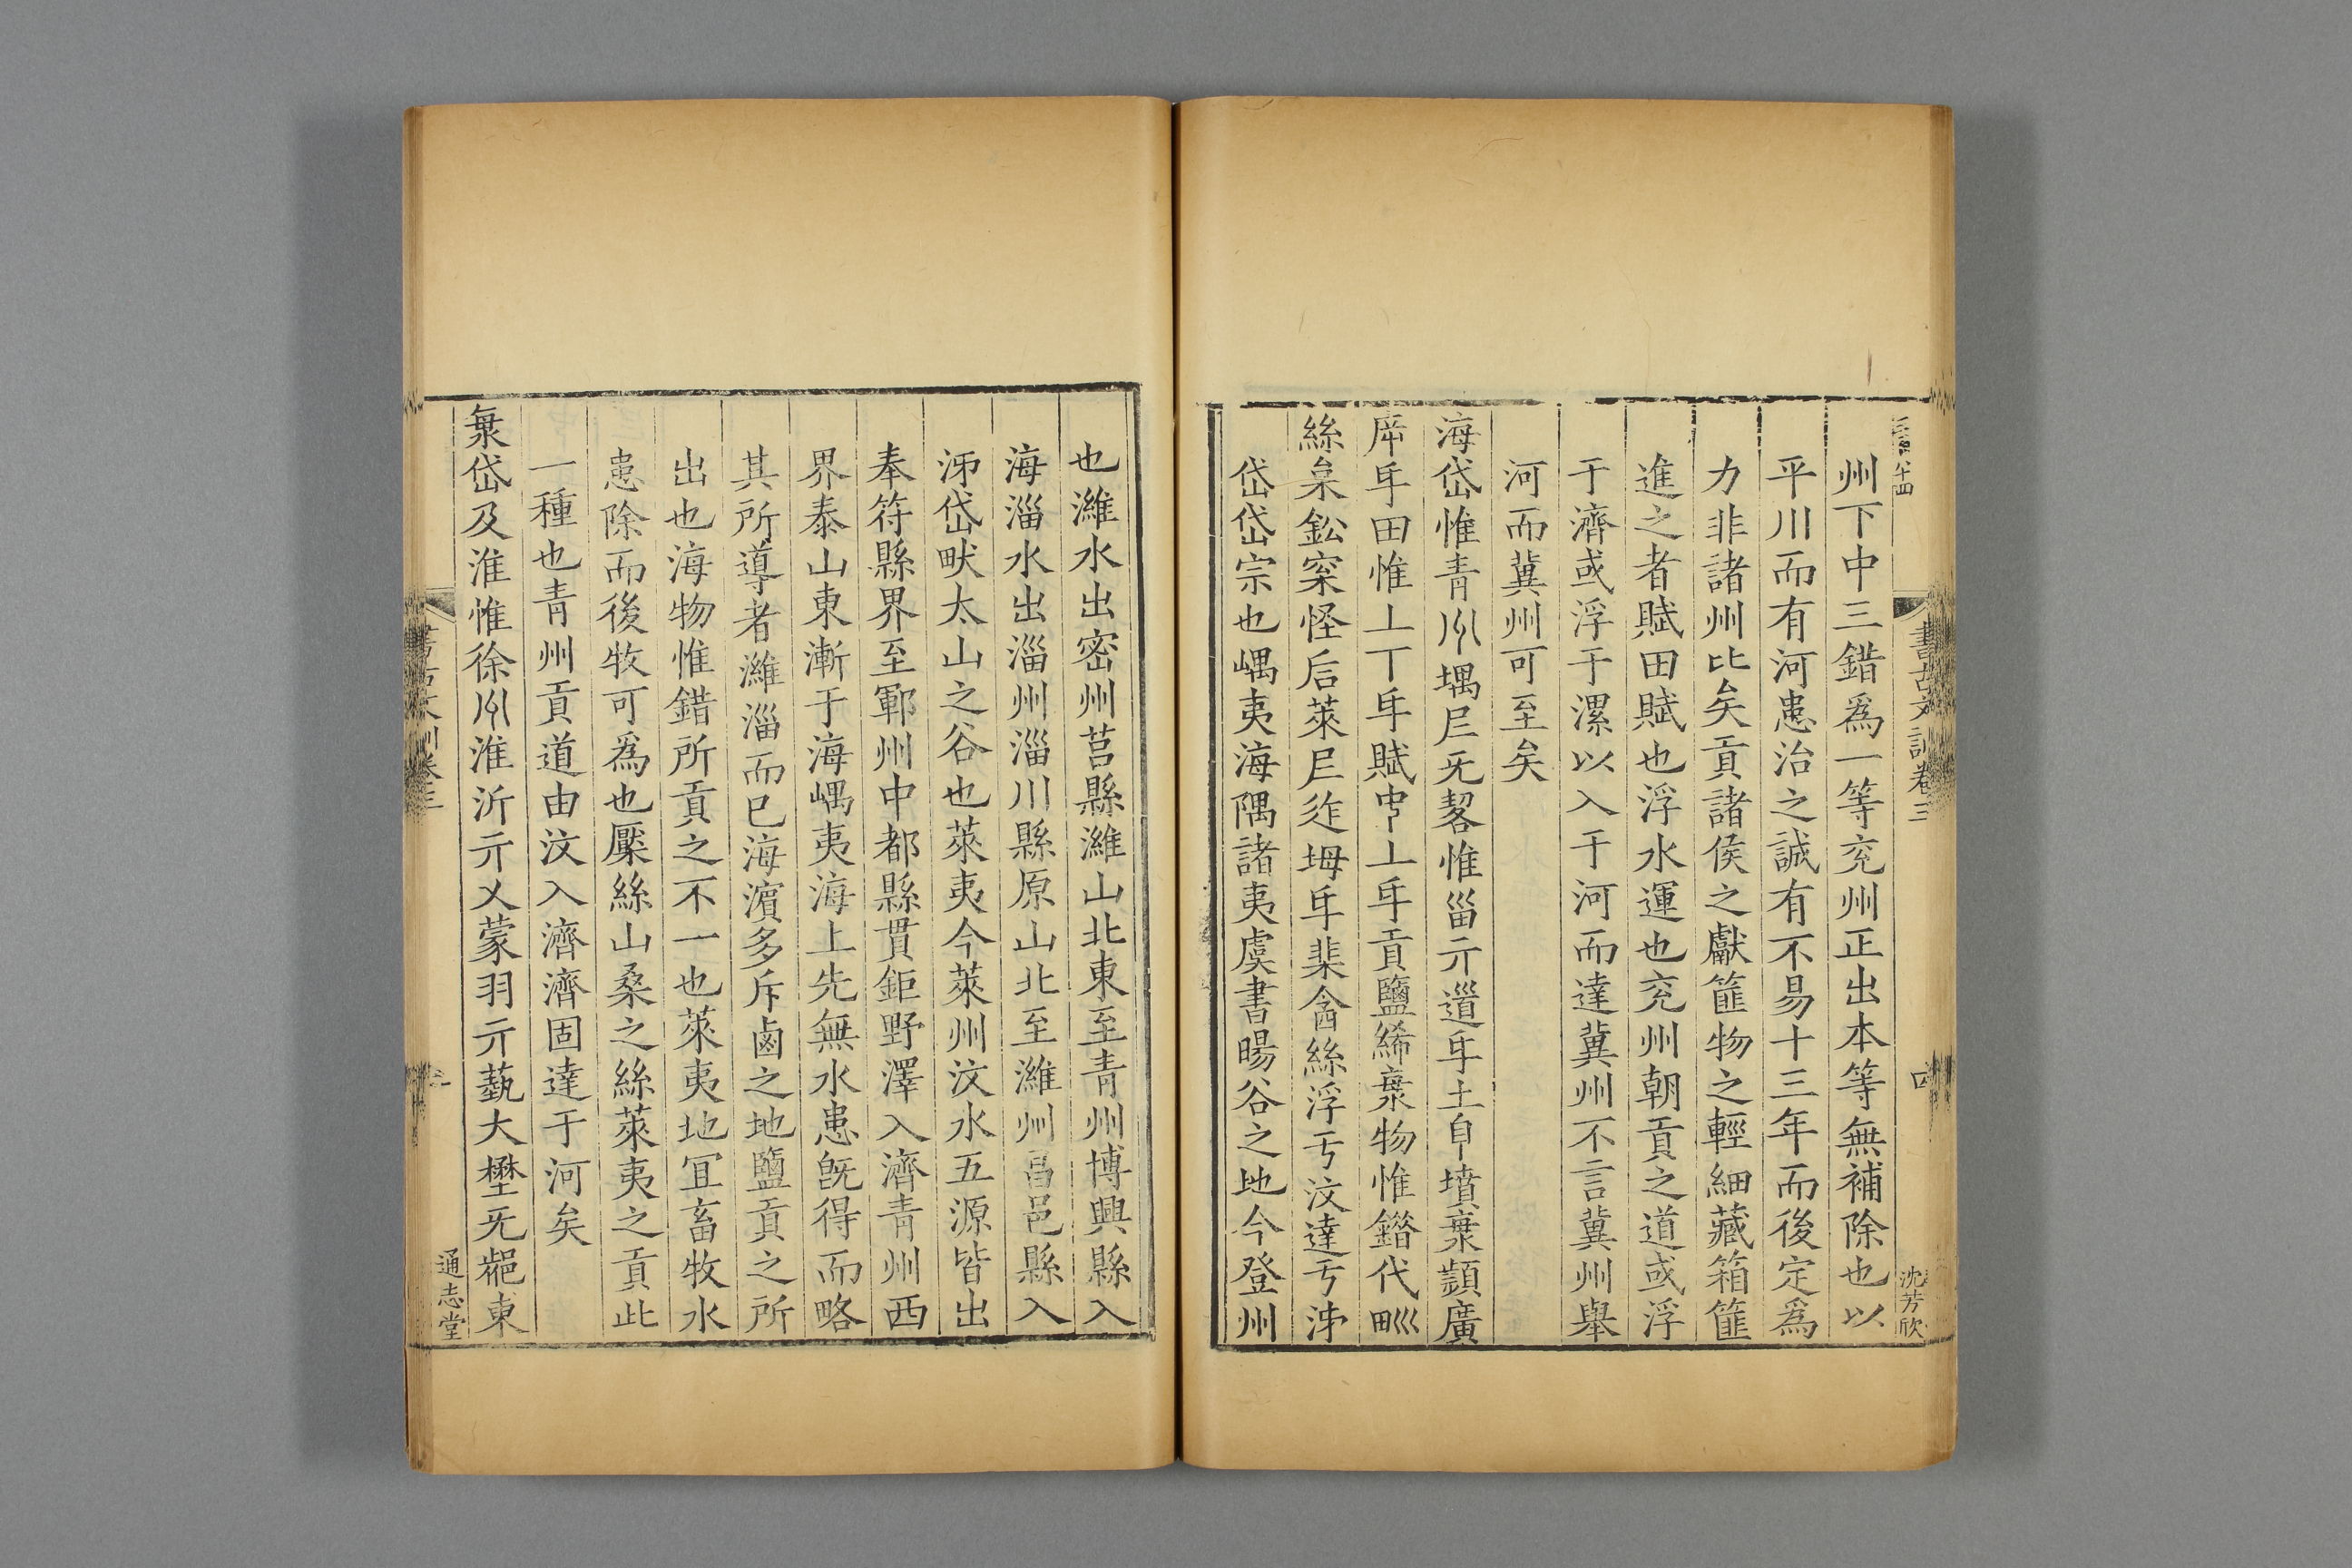 書古文訓卷三
四
沈芳欣
州下中三錯爲一等兖州正出本等無補除也以
平川而有河患治之誠有不易十三年而後定爲
力非諸州比矣貢諸侯之獻篚物之輕細藏箱篚
進之者賦田賦也浮水運也兖州朝貢之道或浮
于濟或浮于漯以入于河而達冀州不言冀州舉
河而冀州可至矣
海岱惟青𠛭堣𡰥旡䂮惟甾亓𨕥𠂹土𦣹墳㡃顥廣
㡿𠂹田惟丄丅𠂹賦𠁩丄𠂹貢鹽絺㡃物惟鐕代𤰕
絲枲鈆㮤怪后萊𡰥迮坶𠂹棐酓絲浮亐汶達亐泲
岱岱宗也嵎夷海隅諸夷虞書暘谷之地今登州
也濰水出密州莒縣濰山北東至青州博興縣入
海淄水出淄州淄川縣原山北至濰州昌邑縣入
泲岱畎太山之谷也萊夷今萊州汶水五源皆出
奉符縣界至鄆州中都縣貫鉅野澤入濟青州西
界泰山東漸于海嵎夷海上先無水患旣得而略
其所導者濰淄而已海濱多斥鹵之地鹽貢之所
出也海物惟錯所貢之不一也萊夷地宜畜牧水
患除而後牧可爲也檿絲山桑之絲萊夷之貢此
一種也青州貢道由汶入濟濟固達于河矣
㡃岱及淮惟徐𠛭淮沂亓乂蒙羽亓蓺大壄旡𤟇東
書古文訓卷三
通志堂